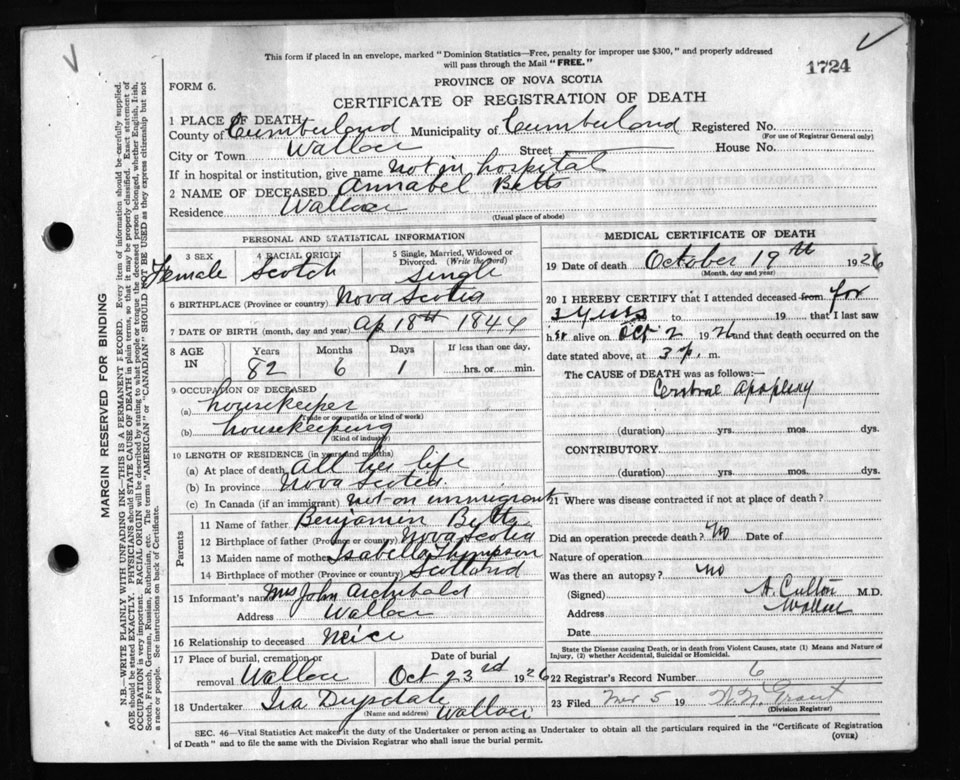 This form if placed in an envelope, marked "Dominion Statistics—Free, penalty for improper use $300," and properly addressed
will pass through the Mail "FREE."
1724
FORM 6.
PROVINCE OF NOVA SCOTIA
CERTIFICATE OF REGISTRATION OF DEATH
1 PLACE OF DEATH
County of Cumberland Municipality of Cumberland Registered No.
(For use of Registrar General only)
City or Town Wallace Street House No.
If in hospital or institution, give name not in hospital
2 NAME OF DECEASED Annabel Betts
Residence Wallace
(Usual place of abode)
PERSONAL AND STATISTICAL INFORMATION
3 SEX 4 RACIAL ORIGIN 5 Single, Married, Widowed or
Divorced. (Write the word)
Female Scotch Single
6 BIRTHPLACE (Province or country) Nova Scotia
7 DATE OF BIRTH (month, day and year) Ap 18th 1844
8 AGE IN Years Months Days If less than one day,
82 6 1 hrs. or min.
9 OCCUPATION OF DECEASED
(a) housekeeper
(Trade or occupation or kind of work)
(b) housekeeping
(Kind of industry)
10 LENGTH OF RESIDENCE (in years and months)
(a) At place of death All her life
(b) In province Nova Scotia
(c) In Canada (if an immigrant) not an immigrant
Parents
11 Name of father Benjamin Betts
12 Birthplace of father (Province or country) Nova Scotia
13 Maiden name of mother Isabella Thompson
14 Birthplace of mother (Province or country) Scotland
15 Informant's name Mrs John Archibald
Address Wallace
16 Relationship to deceased Neice
17 Place of burial, cremation or removal Wallace
Date of burial Oct 23rd 1926
18 Undertaker Ira Drysdale Wallace
(Name and address)
MEDICAL CERTIFICATE OF DEATH
19 Date of death October 19th 1926
(Month, day and year)
20 I HEREBY CERTIFY that I attended deceased from for
3 years to 19 that I last saw
her alive on Oct 2 1926 and that death occurred on the
date stated above, at 3 p. m.
The CAUSE OF DEATH was as follows:—
apoplexy
(duration) yrs. mos. dys.
CONTRIBUTORY
(duration) yrs. mos. dys.
21 Where was disease contracted if not at place of death?
Did an operation precede death? No Date of
Nature of operation
Was there an autopsy? no
(Signed) A. Cullon M.D.
Address Wallace
Date
State the Disease causing Death, or in death from Violent Causes, state (1) Means and Nature of
Injury, (2) whether Accidental, Suicidal or Homicidal.
22 Registrar's Record Number 6
23 Filed Nov 5 19 Grant
(Division Registrar)
SEC. 46—Vital Statistics Act makes it the duty of the Undertaker or person acting as Undertaker to obtain all the particulars required in the "Certificate of Registration
of Death" and to file the same with the Division Registrar who shall issue the burial permit.
(OVER)
MARGIN RESERVED FOR BINDING
N.B.—WRITE PLAINLY WITH UNFADING INK—THIS IS A PERMANENT RECORD. Every item of information should be carefully supplied.
AGE should be stated EXACTLY. PHYSICIANS should STATE CAUSE OF DEATH in plain terms, so that it may be properly classified. Exact statement of
OCCUPATION is very important. RACIAL ORIGIN will be described by stating to what people or tongue the deceased person belonged, whether English, Irish,
Scotch, French, German, Russian, Ruthenian, etc. The terms "AMERICAN" or "CANADIAN" SHOULD NOT BE USED as they express citizenship but not
a race or people. See instructions on back of Certificate.